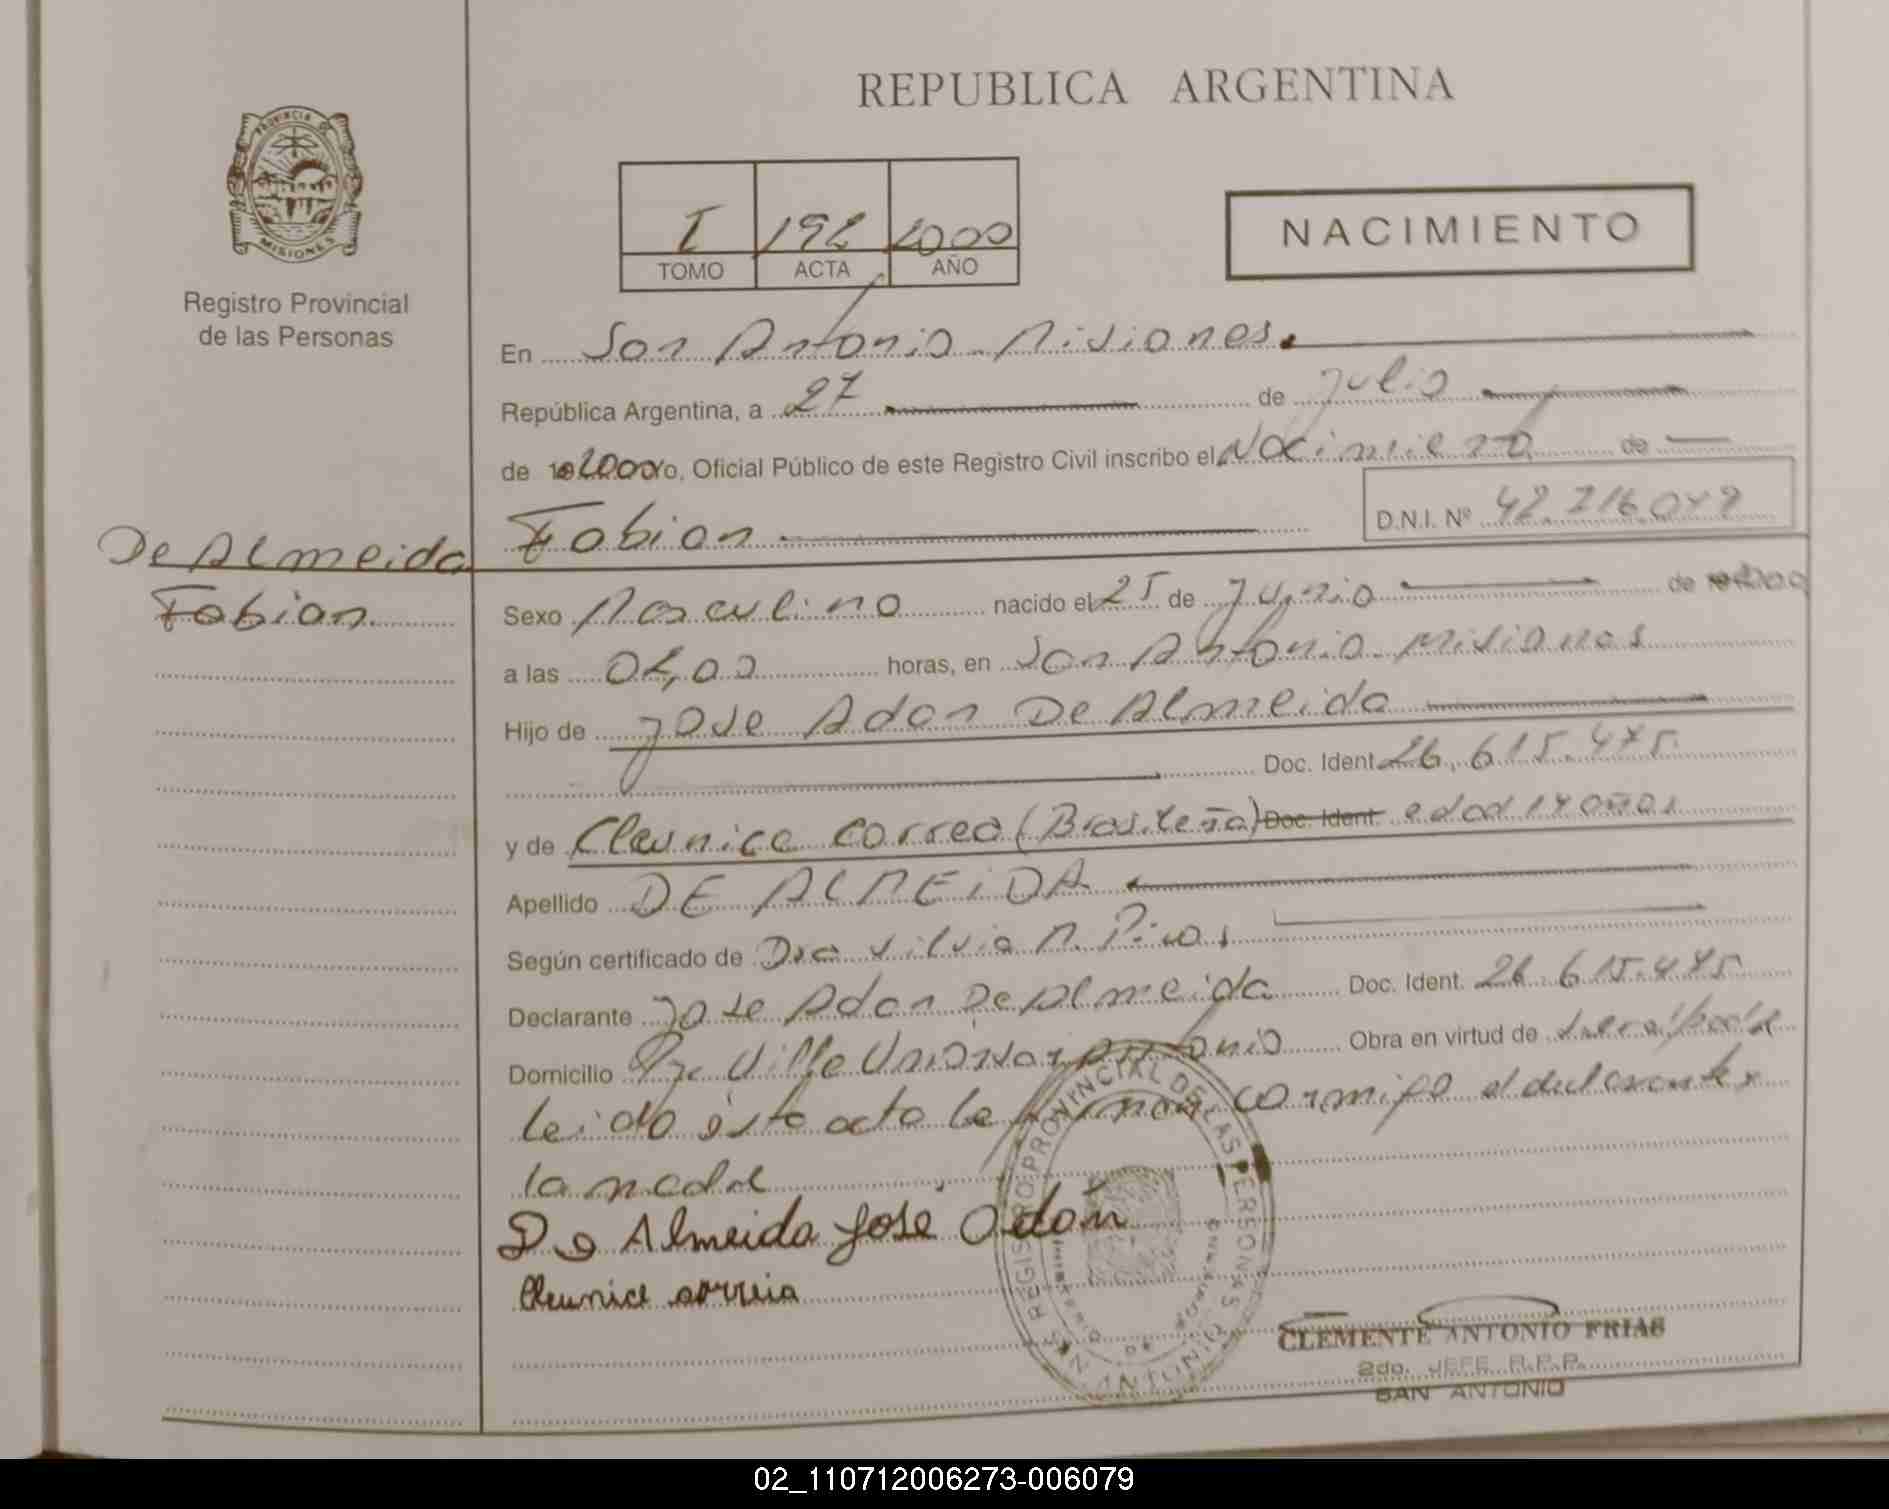 REPUBLICA ARGENTINA
PROVINCIA DE
MISIONES
Registro Provincial
de las Personas
I 192 2000
TOMO ACTA AÑO
NACIMIENTO
En San Antonio Misiones.
República Argentina, a 27 de Julio
de 2000 yo, Oficial Público de este Registro Civil inscribo el Nacimiento de
Fabian
D.N.I. Nº
De Almeida
Fabian
Sexo Masculino nacido el 25 de Junio de
a las horas, en San Antonio Misiones
Hijo de Jose Adan De Almeida
Doc. Ident. 26.615.475
y de Cleunice Correa (Brasileña) Doc. Ident. edad años
Apellido DE ALMEIDA
Según certificado de Dra Silvia M.
Declarante Jose Adan De Almeida Doc. Ident. 26.615.475
Domicilio Antonio Obra en virtud de
Leido este acta la firman conmigo el declarante y
la madre
De Almeida José Adán
Cleunice correia
REGISTRO PROVINCIAL DE LAS PERSONAS
SAN ANTONIO
CLEMENTE ANTONIO FRIAS
2do. JEFE R.P.P.
SAN ANTONIO
02_110712006273-006079